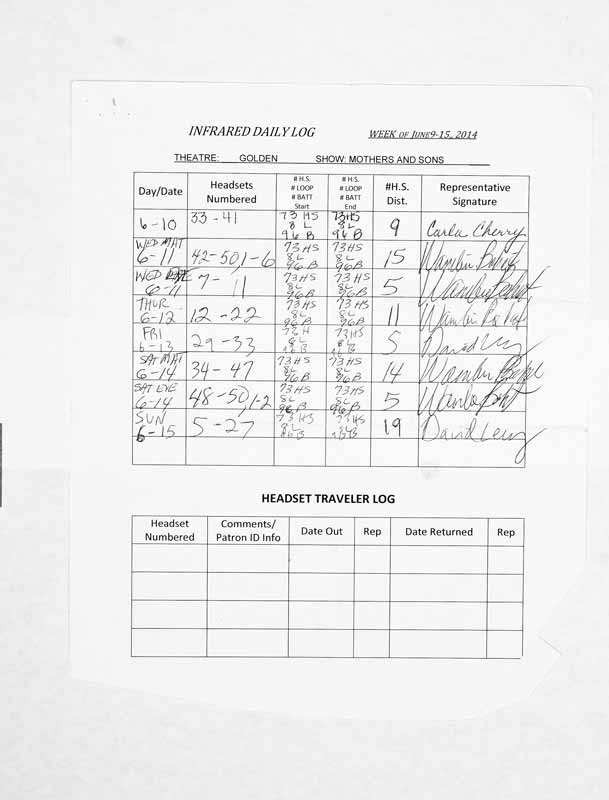 INFRARED DAILY LOG WEEK OF JUNE9-15, 2014
THEATRE: GOLDEN SHOW: MOTHERS AND SONS
Day/Date Headsets Numbered # H.S. # LOOP # BATT Start # H.S. # LOOP # BATT End #H.S. Dist. Representative Signature
6-10 33-41 73 HS 8 L 96 B 73HS 8L 96 B 9 Carla Cherry
WED MAT 6-11 42-50,1-6 73HS 8L 96B 73HS 8L 96B 15
WED EVE 6-11 7-11 73HS 8L 96B 73HS 8L 96B 5
THUR 6-12 12-22 73HS 8L 96B 73HS 8L 96B 11
FRI 6-13 29-33 73H 8L 96B 73HS 8L 96B 5 David Levy
SAT MAT 6-14 34-47 73HS 8L 96B 73HS 8L 96B 14
SAT EVE 6-14 48-50,1-2 73HS 8L 96B 73HS 8L 96B 5
SUN 6-15 5-27 73HS 8L 96B 73HS 8L 96B 19 David Levy
HEADSET TRAVELER LOG
Headset Numbered Comments/ Patron ID Info Date Out Rep Date Returned Rep